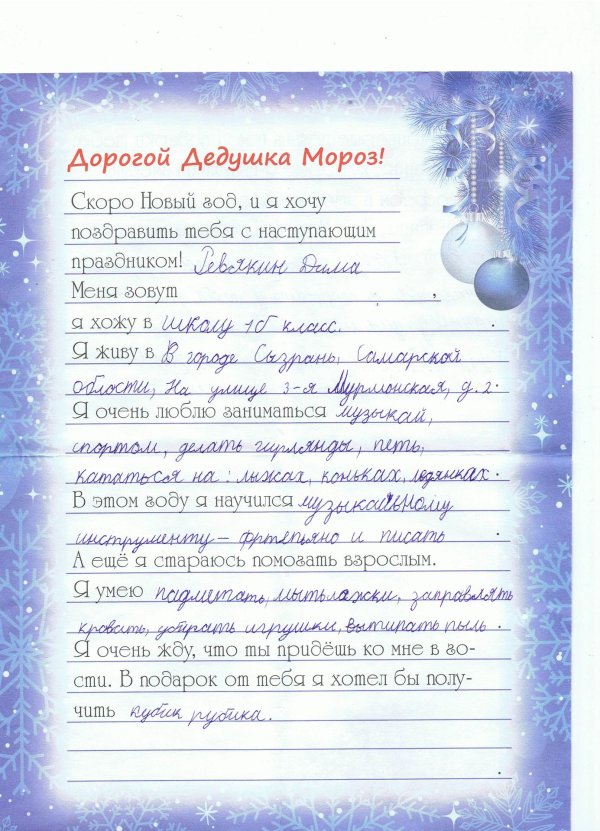 Дорогой Дедушка Мороз!
Скоро Новый год, и я хочу
поздравить тебя с наступающим
праздником! Ревякин Дима
Меня зовут ,
я хожу в школу 1б класс. .
Я живу в В городе Сызрань, Самарской
области, На улице 3-я Мурмонская, д. 2.
Я очень люблю заниматься музыкай,
спортом, делать гирлянды, петь,
кататься на: лыжах, коньках, ледянках.
В этом году я научился музыкальному
инструменту - фртепьяно и писать .
А ещё я стараюсь помогать взрослым.
Я умею падметать, мыть лажки, заправлять
кровать, убирать игрушки, вытирать пыль.
Я очень жду, что ты придёшь ко мне в го-
сти. В подарок от тебя я хотел бы полу-
чить кубик рубика.
.